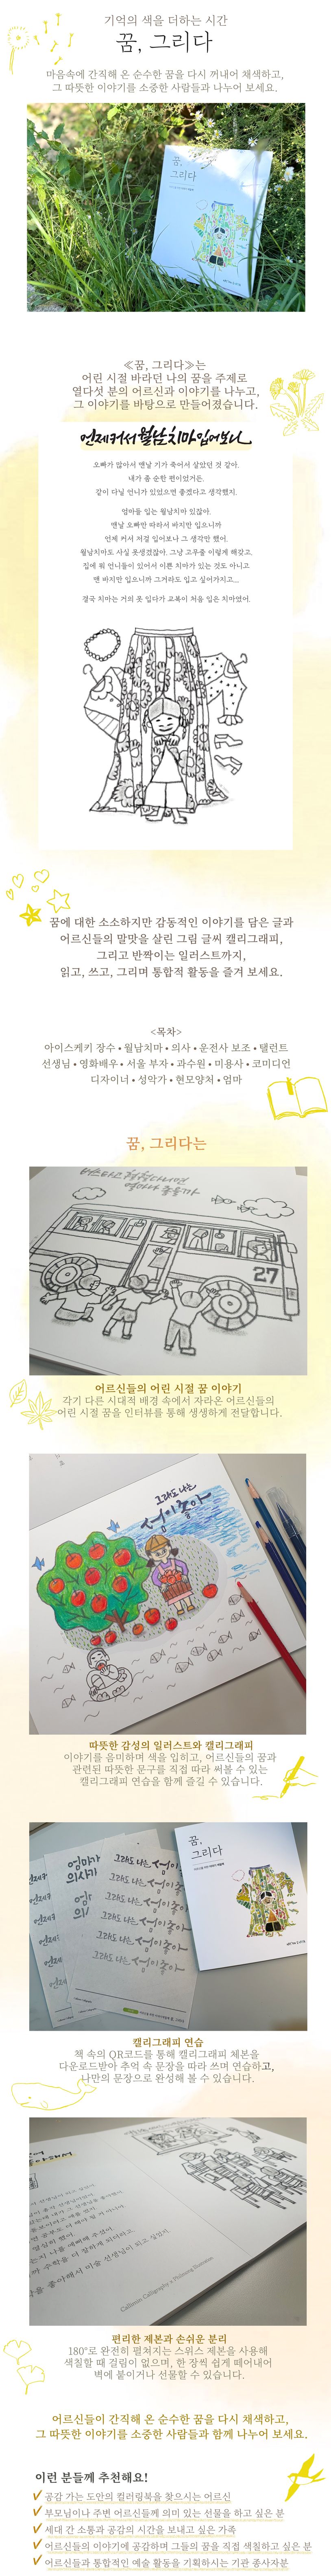 기억의 색을 더하는 시간
꿈, 그리다
마음속에 간직해 온 순수한 꿈을 다시 꺼내어 채색하고,
그 따뜻한 이야기를 소중한 사람들과 나누어 보세요.
꿈,
그리다
≪꿈, 그리다≫는
어린 시절 바라던 나의 꿈을 주제로
열다섯 분의 어르신과 이야기를 나누고,
그 이야기를 바탕으로 만들어졌습니다.
언제커서 월남치마 입어보나
오빠가 많아서 옛날 기가 죽어서 살았던 것 같아.
내가 좀 순한 편이었거든.
같이 다닐 언니가 있었으면 좋겠다고 생각했지.
엄마들 입는 월남치마 있잖아.
맨날 오빠만 따라서 바지만 입으니까
언제 커서 저걸 입어보나 그 생각만 했어.
월남치마도 사실 못생겼잖아. 그냥 고무줄 이렇게 해갖고.
집에 뭐 언니들이 있어서 이쁜 치마가 있는 것도 아니고
맨 바지만 입으니까 그거라도 입고 싶어가지고...
결국 치마는 거의 못 입다가 교복이 처음 입은 치마였어.
꿈에 대한 소소하지만 감동적인 이야기를 담은 글과
어르신들의 말맛을 살린 그림 글씨 캘리그래피,
그리고 반짝이는 일러스트까지,
읽고, 쓰고, 그리며 통합적 활동을 즐겨 보세요.
<목차>
아이스케키 장수 • 월남치마 • 의사 • 운전사 보조 • 탤런트
선생님 • 영화배우 • 서울 부자 • 과수원 • 미용사 • 코미디언
디자이너 • 성악가 • 현모양처 • 엄마
꿈, 그리다는
버스타고 칙칙다니면
얼마나 좋을까
27
어르신들의 어린 시절 꿈 이야기
각기 다른 시대적 배경 속에서 자라온 어르신들의
어린 시절 꿈을 인터뷰를 통해 생생하게 전달합니다.
그래도 나는
섬이 좋아
따뜻한 감성의 일러스트와 캘리그래피
이야기를 음미하며 색을 입히고, 어르신들의 꿈과
관련된 따뜻한 문구를 직접 따라 써볼 수 있는
캘리그래피 연습을 함께 즐길 수 있습니다.
엄마가
의사기
그래도 나는 섬이 좋아
그래도 나는 섬이 좋아
그래도 나는 섬이 좋아
그래도 나는 섬이 좋아
꿈,
그리다
캘리그래피 연습
책 속의 QR코드를 통해 캘리그래피 체본을
다운로드받아 추억 속 문장을 따라 쓰며 연습하고,
나만의 문장으로 완성해 볼 수 있습니다.
좋아해서 미술 선생님이 되고 싶었지.
편리한 제본과 손쉬운 분리
180°로 완전히 펼쳐지는 스위스 제본을 사용해
색칠할 때 걸림이 없으며, 한 장씩 쉽게 떼어내어
벽에 붙이거나 선물할 수 있습니다.
어르신들이 간직해 온 순수한 꿈을 다시 채색하고,
그 따뜻한 이야기를 소중한 사람들과 함께 나누어 보세요.
이런 분들께 추천해요!
공감 가는 도안의 컬러링북을 찾으시는 어르신
부모님이나 주변 어르신들께 의미 있는 선물을 하고 싶은 분
세대 간 소통과 공감의 시간을 보내고 싶은 가족
어르신들의 이야기에 공감하며 그들의 꿈을 직접 색칠하고 싶은 분
어르신들과 통합적인 예술 활동을 기획하시는 기관 종사자분